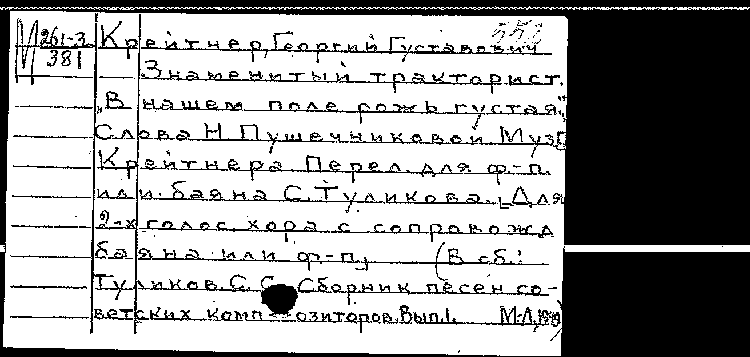 М 261-3
381
Крейтнер, Георгий Густавович
Знаменитый тракторист.
„В нашем поле рожь густая."
Слова Н Пушечниковой Муз.
Крейтнера Перел. для ф-п.
или баяна С. Туликова. Для
2-х голос. хора с сопровожд
баяна или ф-п, (В сб.:
Туликов. С. С. Сборник песен со-
ветских композиторов. Вып. 1. М-Л,